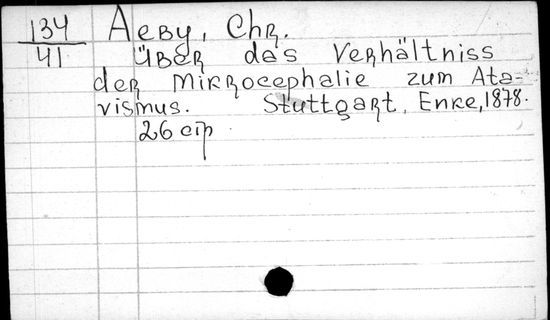 134 Aeby, Chr.
41 Über das Verhältniss
der Mikrocephalie zum Ata-
vismus. Stuttgart, Enke, 1878.
26 стр